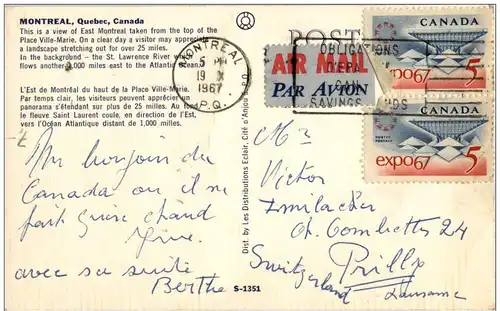 MONTREAL, Quebec, Canada
This is a view of East Montreal taken from the top of the
Place Ville-Marie. On a clear day a visitor may appreciate
a landscape stretching out for over 25 miles.
In the background - the St. Lawrence River which
flows another 1,000 miles east to the Atlantic Ocean.
L'Est de Montréal du haut de la Place Ville-Marie.
Par temps clair, les visiteurs peuvent apprécier un
panorama s'étendant sur plus de 25 milles. Au fond
le fleuve Saint Laurent coule, en direction de l'Est,
vers l'Océan Atlantique distant de 1,000 milles.
Un bonjour du
Canada ou il ne
fait guère chaud
avec sa suite
Berthe
S-1351
Dist. by Les Distributions Eclair, Cité d'Anjou
MONTREAL
5 PM
19 X
1967
P.Q.
AIR MAIL
PAR AVION
OBLIGATIONS
D'EPARGNE
SAVINGS BONDS
CANADA
expo67 5
CANADA
POSTES POSTAGE
expo67 5
Mr
Victor
Imilacher
ch. Combettes 24
Prilly
Switzerland Lausanne